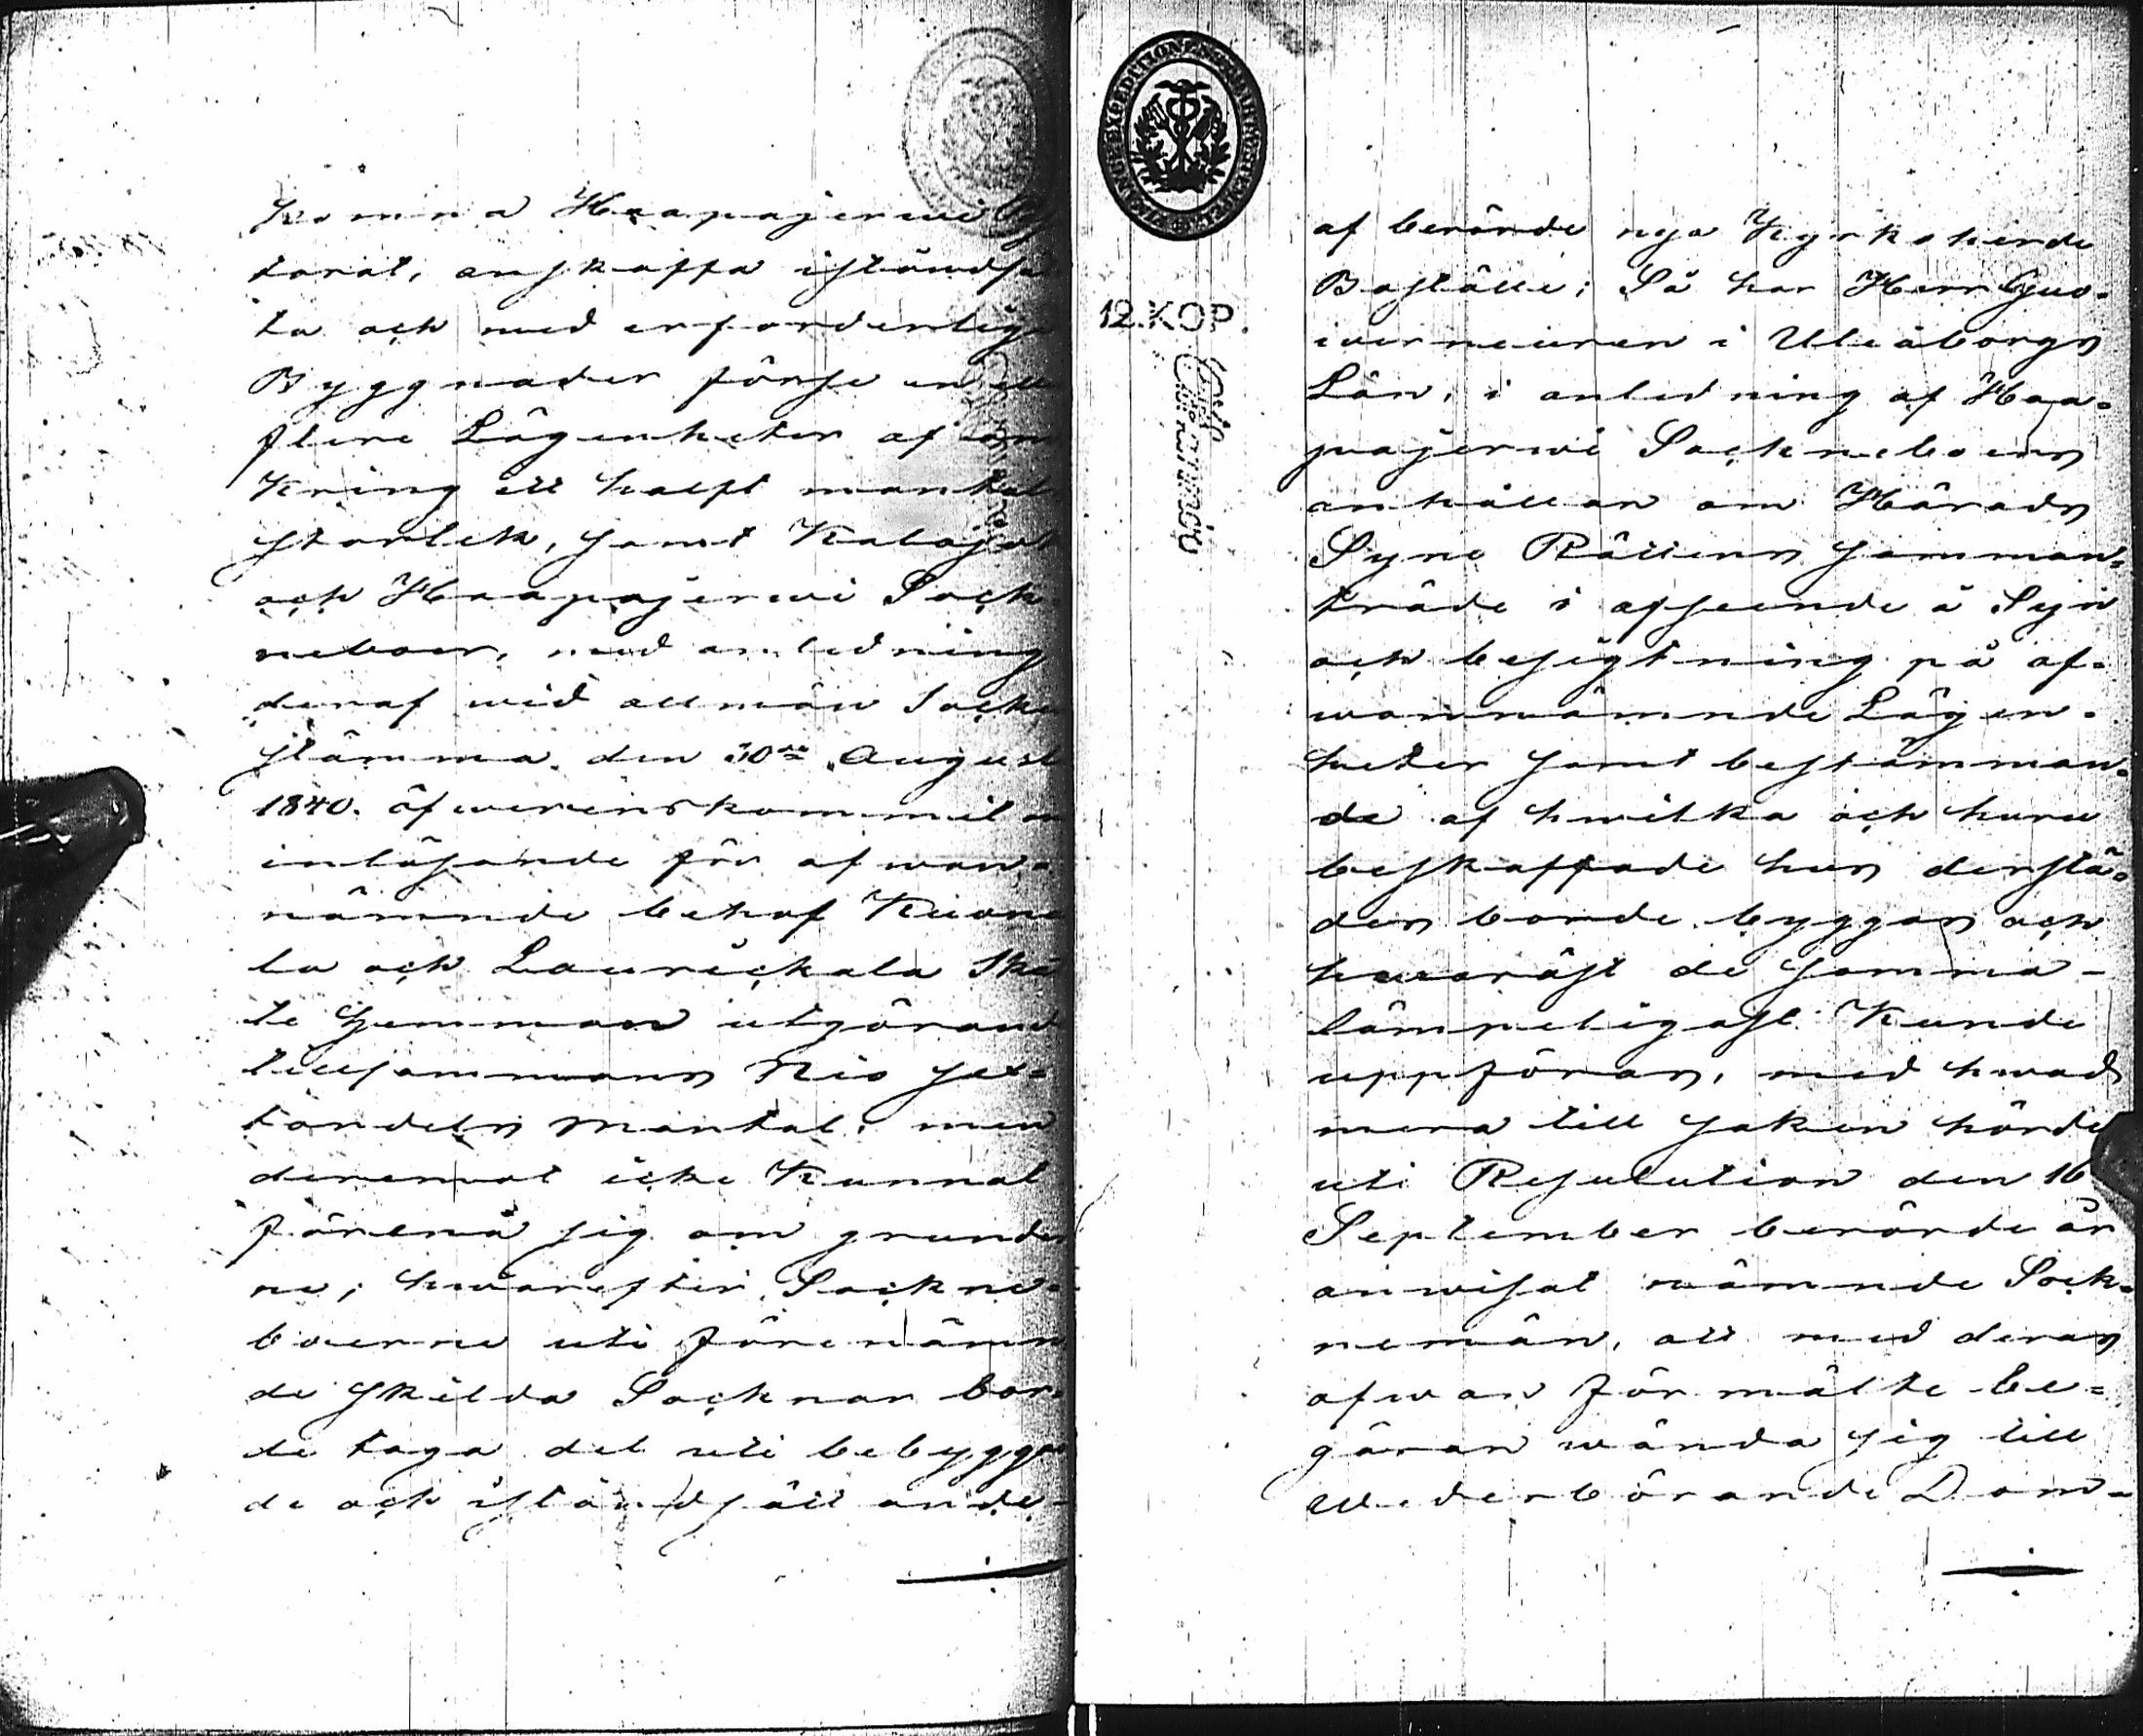 komna Haapajerwi
torat, anskaffa iståndsa
ta och med erforderlige
Byggnader förse en ell
flere Lägenheter af om
kring ett halft mantals
storlek, samt Kalajok
och Haapajerwi Sock
neboer, med anledning
deraf wid allmän Socke
stämma den 30de August
1840. öfwerenskommit
inlösande för ofwan-
nämnde behof Kuone
la och Laurickala Skat
te Hemman utgörand
tillsammans Nio Sex-
tondels mantal, men
deremot icke kunnat
förena sig om grunder
na, hwarefter Sockne-
boerne uti förenämn
de skilda Socknar bor-
de taga del uti bebyggan
de och iståndsättande
12. KOP.
af berörde nya Kyrkoherde
Boställe; Så har Herr Guv-
verneuren i Uleåborgs
Län, i anledning af Haa-
pajerwi Sockneboers
anhållan om Härads
Syne Rättens samman-
träde i afseende å Syn
och besigtning på of-
wannämnde Lägen-
heter samt bestämman-
de af hwilka och huru
beskaffade hus derstä-
des borde byggas och
hwaräst de samma
lämpeligast kunde
uppföras, med hwad
mera till saken hörde
uti Resolution den 16
September berörde år
anwisat nämnde Sock-
nemän, att med deras
ofwan förmälte be-
gäran wända sig till
wederbörande Dom-